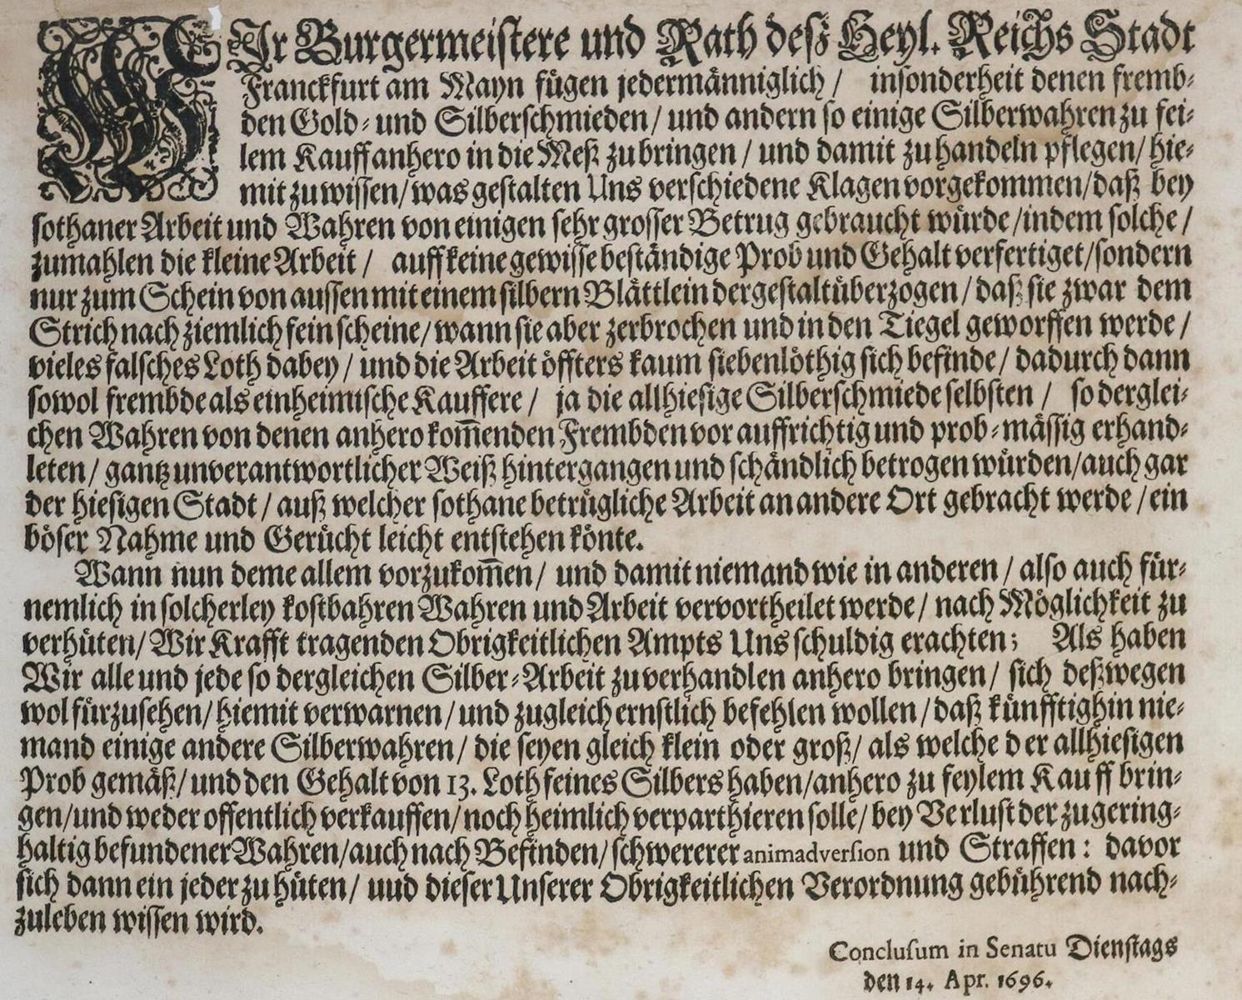 WIr Burgermeistere und Rath deß Heyl. Reichs Stadt
Franckfurt am Mayn fügen jedermänniglich / insonderheit denen fremb-
den Gold- und Silberschmieden / und andern so einige Silberwahren zu fei-
lem Kauff anhero in die Meß zu bringen / und damit zu handeln pflegen / hie-
mit zu wissen / was gestalten Uns verschiedene Klagen vorgekommen / daß bey
sothaner Arbeit und Wahren von einigen sehr grosser Betrug gebraucht würde / indem solche /
zumahlen die kleine Arbeit / auff keine gewisse beständige Prob und Gehalt verfertiget / sondern
nur zum Schein von aussen mit einem silbern Blättlein dergestalt überzogen / daß sie zwar dem
Strich nach ziemlich fein scheine / wann sie aber zerbrochen und in den Tiegel geworffen werde /
vieles falsches Loth dabey / und die Arbeit öffters kaum siebenlöthig sich befinde / dadurch dann
sowol frembde als einheimische Kauffere / ja die allhiesige Silberschmiede selbsten / so derglei-
chen Wahren von denen anhero kom̄enden Frembden vor auffrichtig und prob-mässig erhand-
leten / gantz unverantwortlicher Weiß hintergangen und schändlich betrogen würden / auch gar
der hiesigen Stadt / auß welcher sothane betrügliche Arbeit an andere Ort gebracht werde / ein
böser Nahme und Gerücht leicht entstehen könte.
Wann nun deme allem vorzukom̄en / und damit niemand wie in anderen / also auch für-
nemlich in solcherley kostbahren Wahren und Arbeit vervortheilet werde / nach Möglichkeit zu
verhüten / Wir Krafft tragenden Obrigkeitlichen Ampts Uns schuldig erachten; Als haben
Wir alle und jede so dergleichen Silber-Arbeit zu verhandlen anhero bringen / sich deßwegen
wol fürzusehen / hiemit verwarnen / und zugleich ernstlich befehlen wollen / daß künfftighin nie-
mand einige andere Silberwahren / die seyen gleich klein oder groß / als welche der allhiesigen
Prob gemäß / und den Gehalt von 13. Loth feines Silbers haben / anhero zu feylem Kauff brin-
gen / und weder offentlich verkauffen / noch heimlich verparthieren solle / bey Verlust der zugering-
haltig befundener Wahren / auch nach Befinden / schwererer animadversion und Straffen: davor
sich dann ein jeder zu hüten / uud dieser Unserer Obrigkeitlichen Verordnung gebührend nach-
zuleben wissen wird.
Conclusum in Senatu Dienstags
den 14. Apr. 1696.